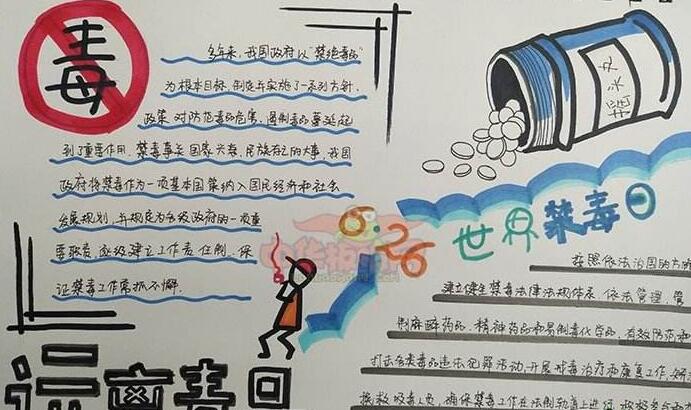 毒
多年来,我国政府以“禁绝毒品”
为根本目标,制定并实施了一系列方针、
政策,对防范毒品危害,遏制毒品蔓延起
到了重要作用。禁毒事关国家兴衰,民族存亡的大事,我国
政府将禁毒作为一项基本国策纳入国民经济和社会
发展规划,并规定为各级政府的一项重
要职责,逐级建立工作责任制,保
证禁毒工作常抓不懈.
摇头丸
6.26
世界禁毒日
按照依法治国的方
建立健全禁毒法律法规体系,依法管理,管
制麻醉药品、精神药品和易制毒化学品,有效防范和
打击各类毒品违法犯罪活动,开展戒毒治疗和康复工作,
挽救吸毒人员,确保禁毒工作在法制轨道上进行
远离毒品